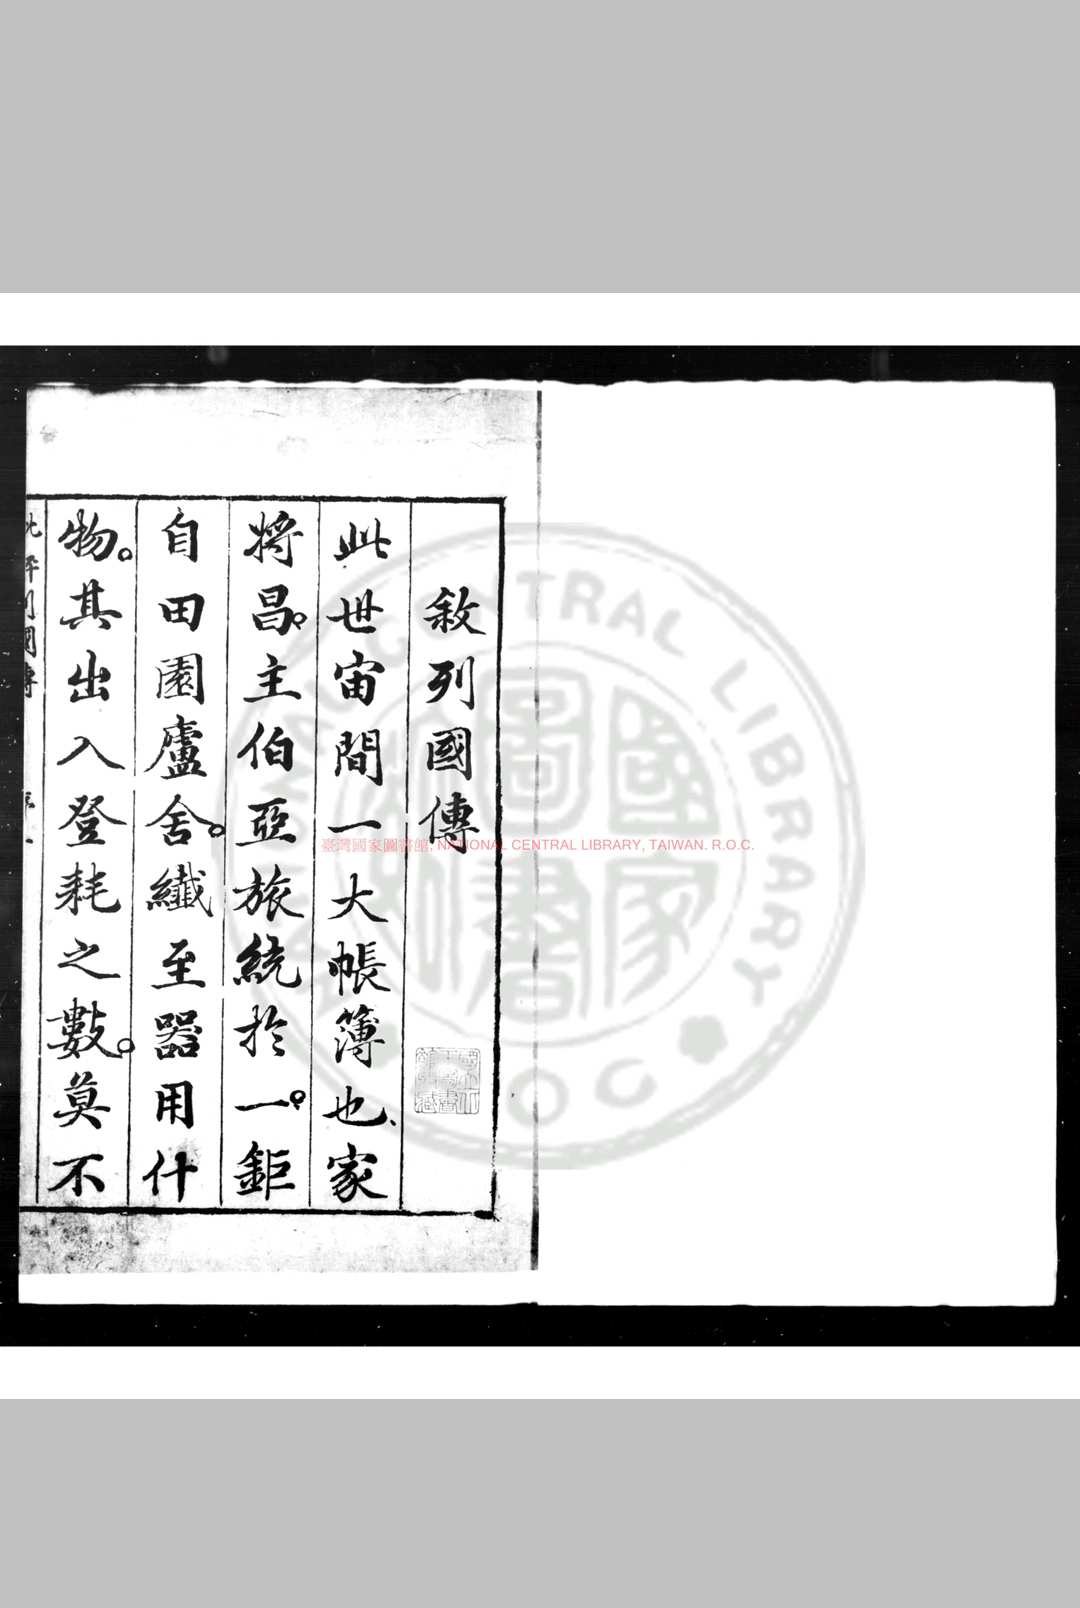 敘列國傳
此世宙間一大帳簿也、家
將昌。主伯亞旅統於一。鉅
自田園廬舍。纖至器用什
物。其出入登耗之數。莫不
臺灣國家圖書館, NATIONAL CENTRAL LIBRARY, TAIWAN. R.O.C.